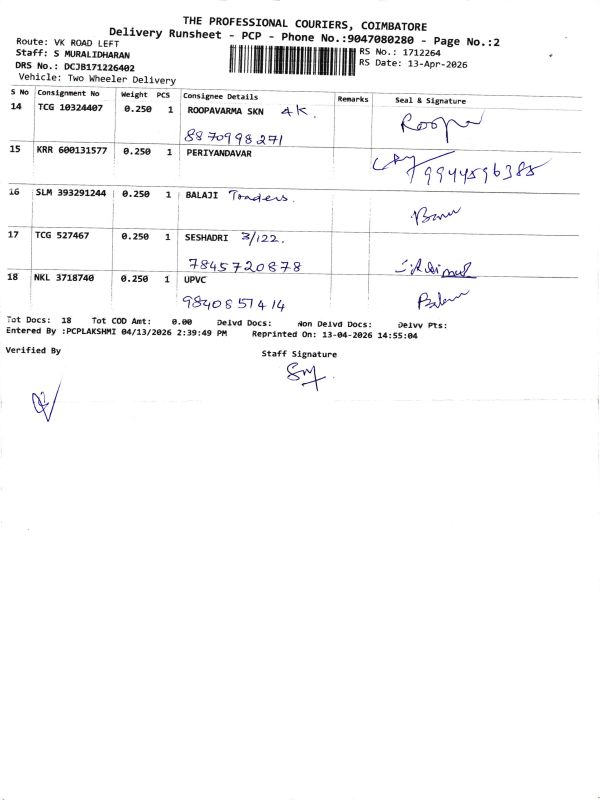 THE PROFESSIONAL COURIERS, COIMBATORE
Delivery Runsheet - PCP - Phone No.:9047080280 - Page No.:2
Route: VK ROAD LEFT
Staff: S MURALIDHARAN
DRS No.: DCJB171226402
Vehicle: Two Wheeler Delivery
RS No.: 1712264
RS Date: 13-Apr-2026
S No Consignment No Weight PCS Consignee Details Remarks Seal & Signature
14 TCG 10324407 0.250 1 ROOPAVARMA SKN 4K. Roopa
8870998271
15 KRR 600131577 0.250 1 PERIYANDAVAR
9944596385
16 SLM 393291244 0.250 1 BALAJI Traders.
17 TCG 527467 0.250 1 SESHADRI 3/122.
7845720878
18 NKL 3718740 0.250 1 UPVC
9840857414
Tot Docs: 18 Tot COD Amt: 0.00 Delvd Docs: Non Delvd Docs: Delvy Pts:
Entered By :PCPLAKSHMI 04/13/2026 2:39:49 PM Reprinted On: 13-04-2026 14:55:04
Verified By
Staff Signature